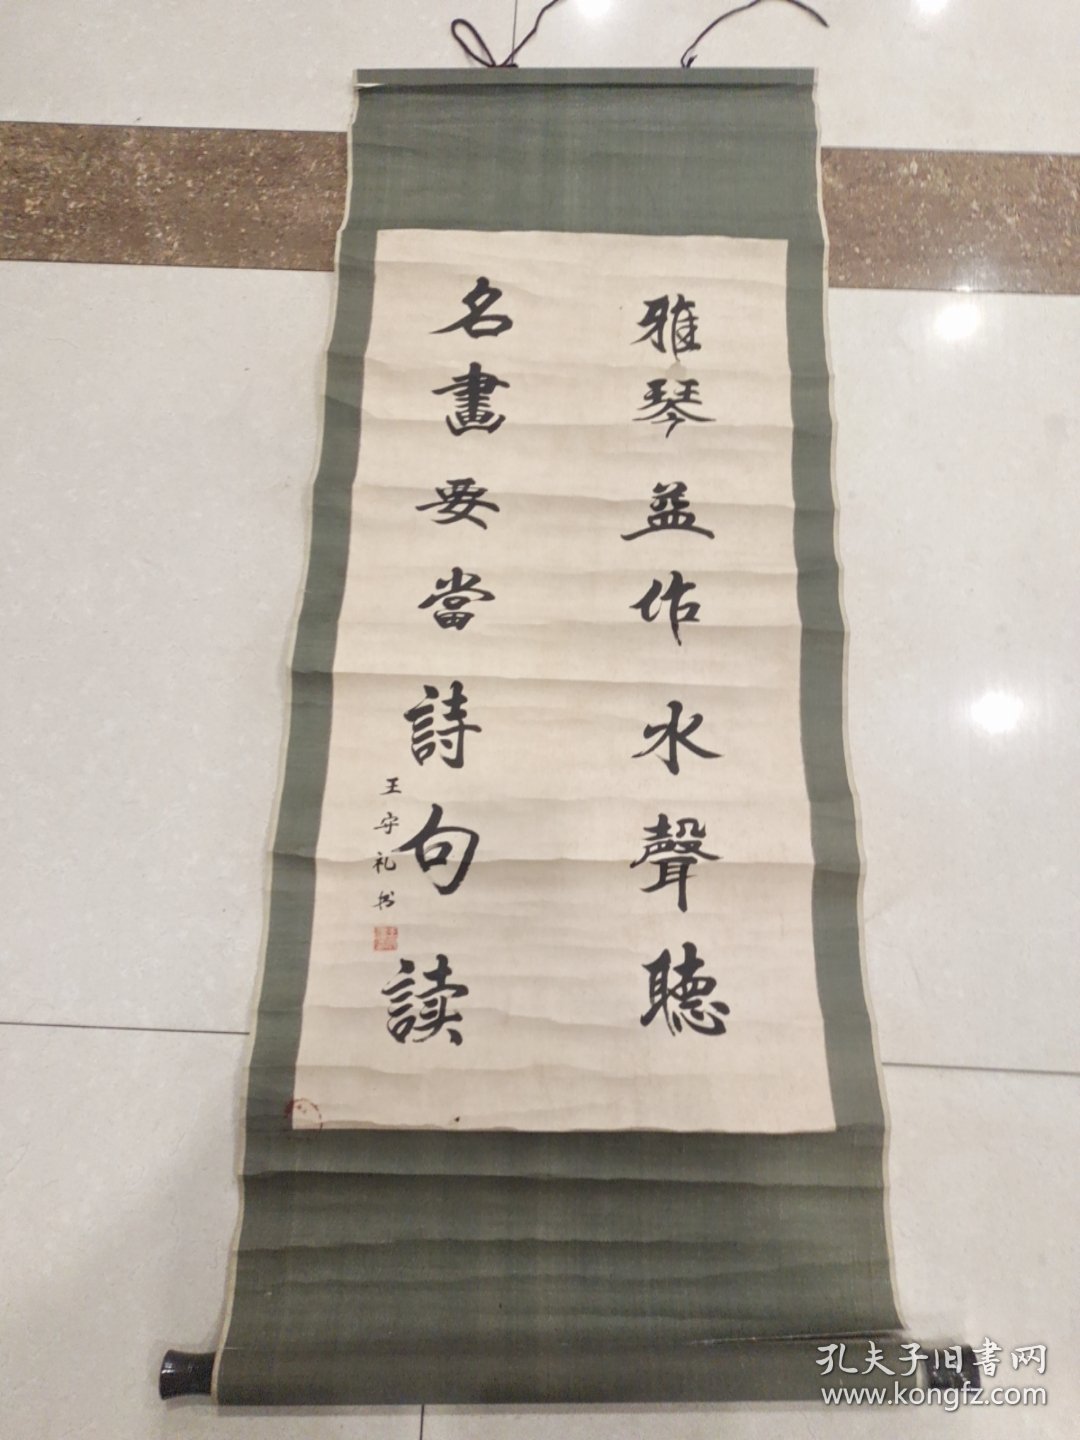 雅琴益作水聲聽
名畫要當詩句读
王守礼书
孔夫子旧書网
www.kongfz.com